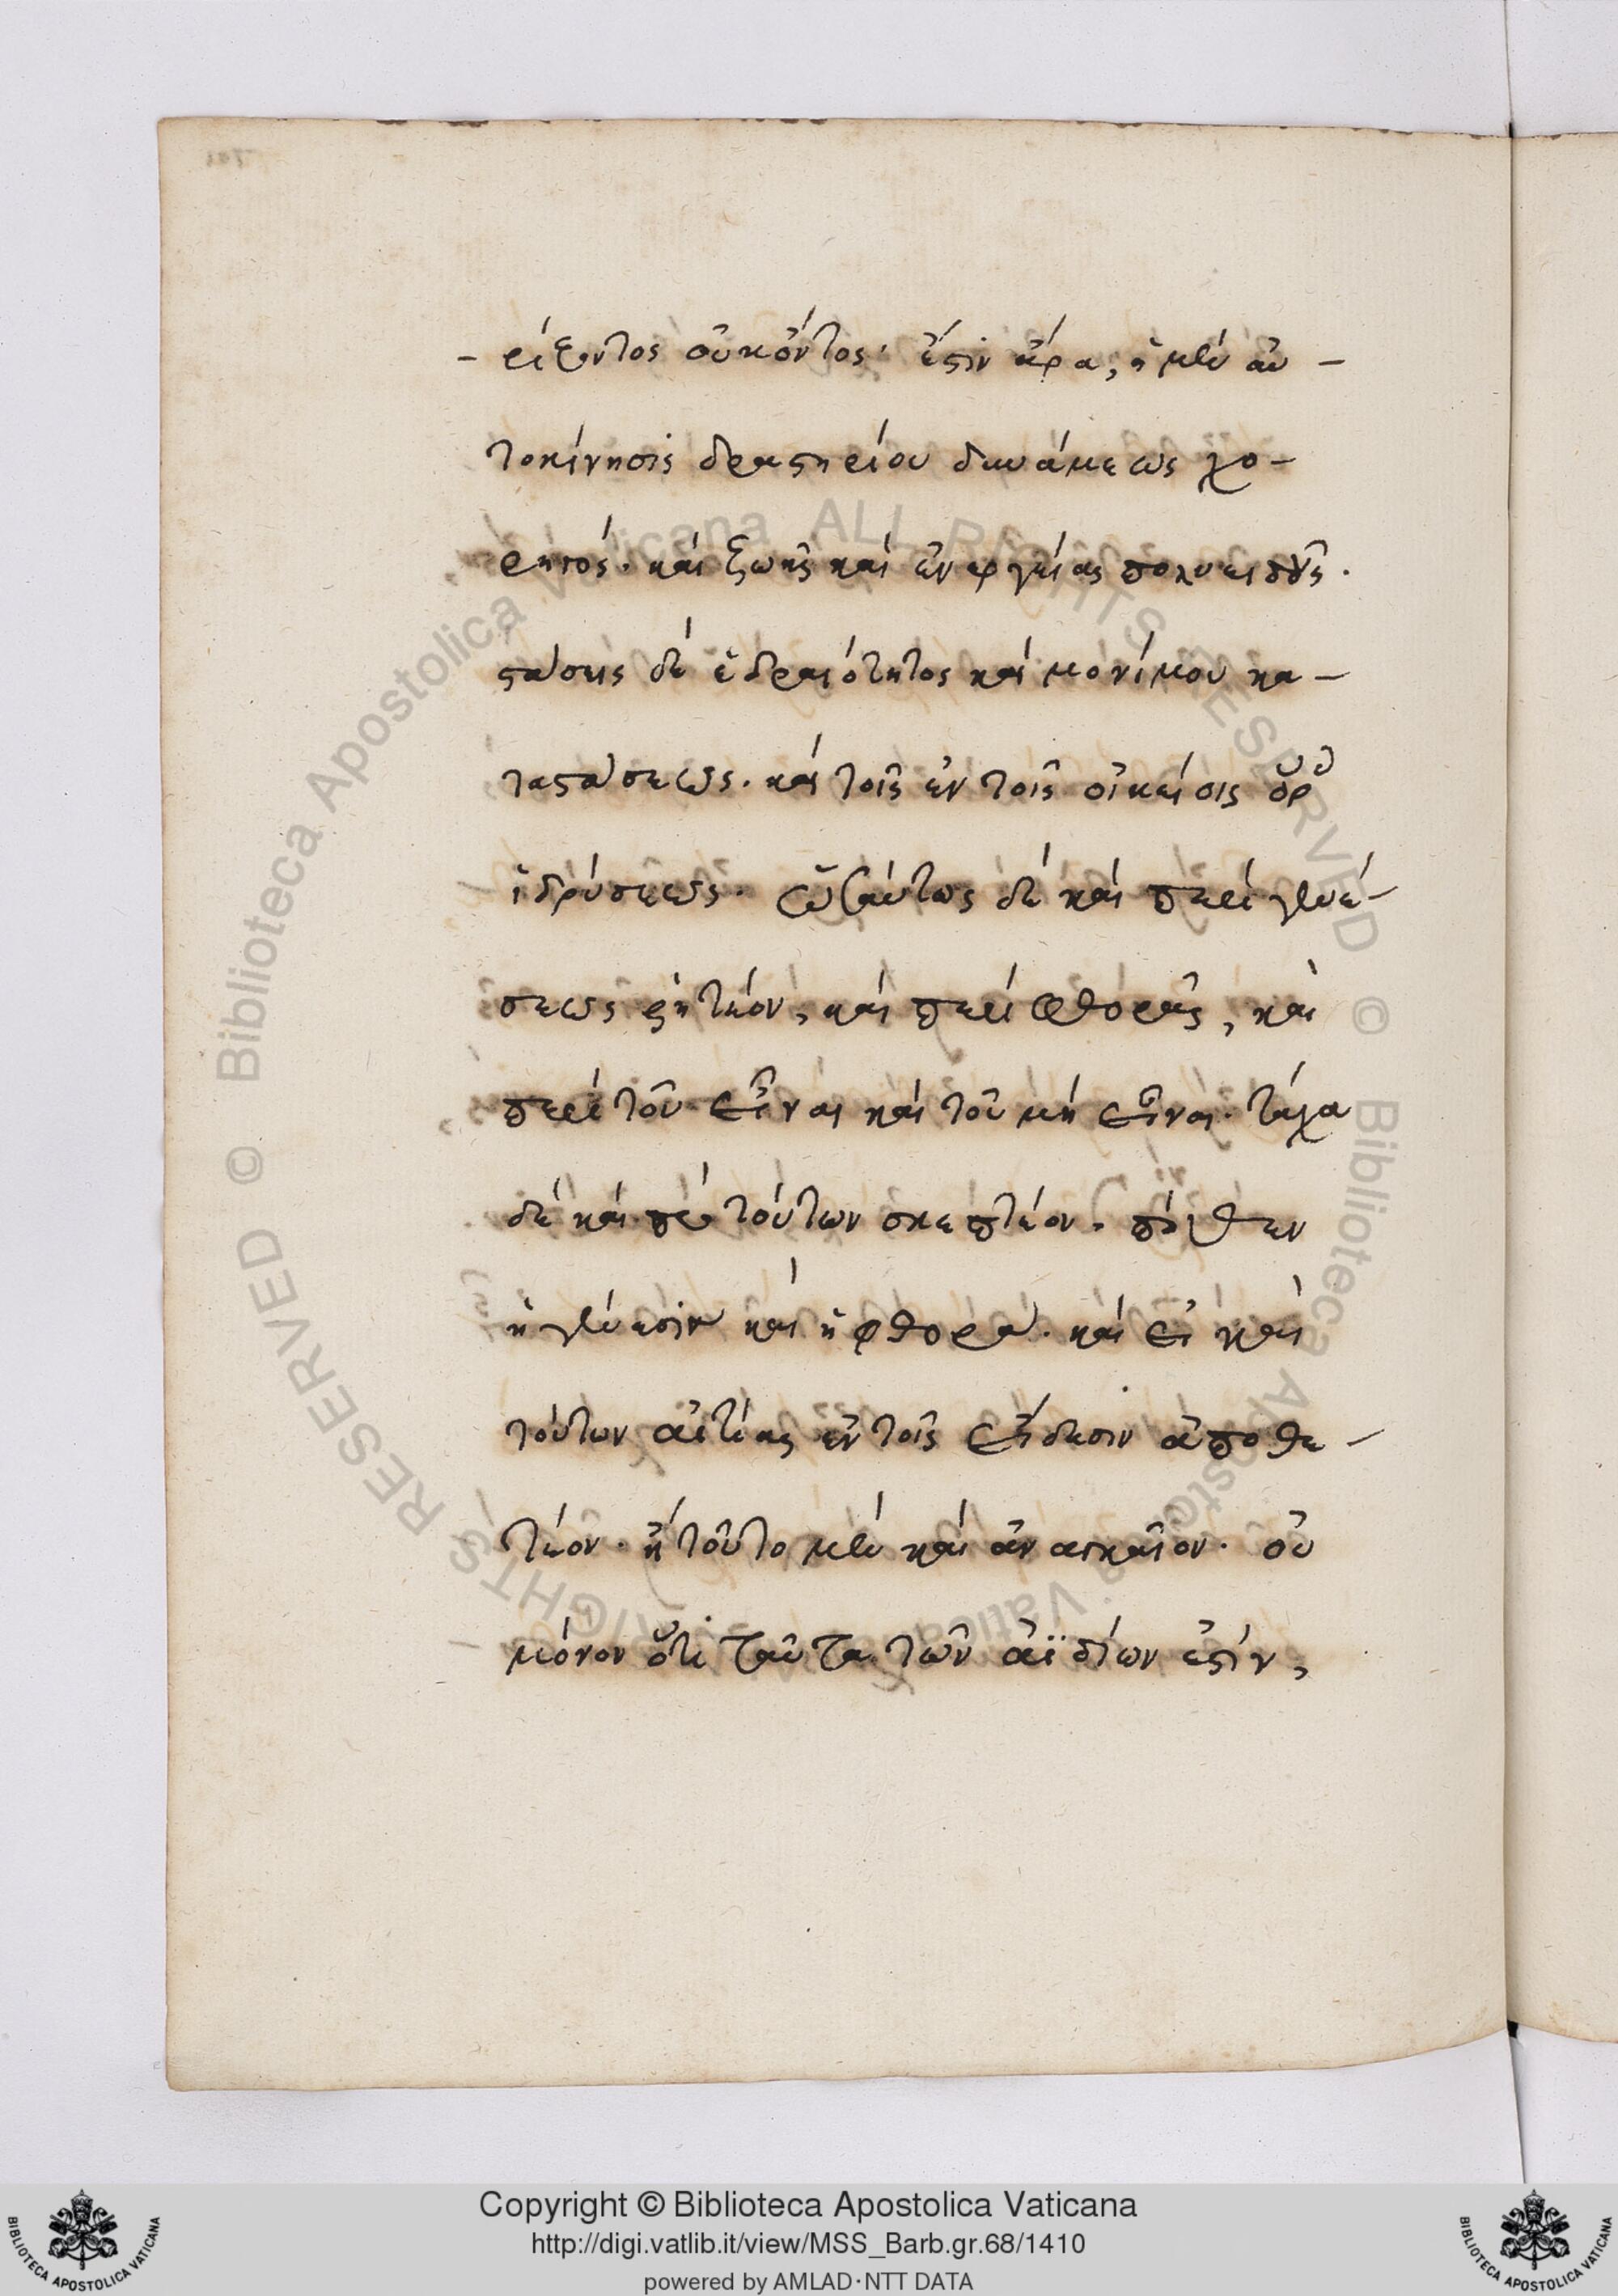 - ρίζοντος οὐκ ὄντος· ἔστιν ἄρα, ἡ μὲν αὐ-
τοκίνησις δραστηρίου δυνάμεως χο-
ρηγός· καὶ ζωῆς καὶ ἐνεργείας πολυειδοῦς.
στάσεις δὲ ἑδραιότητος καὶ μονίμου κα-
ταστάσεως. καὶ τοῖς ἐν τοῖς οἰκείοις
ἱδρύσεως. ὡσαύτως δὲ καὶ περὶ γενέ-
σεως ῥητέον, καὶ περὶ φθορᾶς, καὶ
περὶ τοῦ εἶναι καὶ τοῦ μὴ εἶναι. τάχα
δὲ καὶ τούτων σκεπτέον. πόθεν
ἡ γένεσιν καὶ ἡ φθορά. καὶ εἰ καὶ
τούτων αἰτίας ἐν τοῖς εἴδεσιν ἀποθε-
τέον. ἢ τοῦτο μὲν καὶ ἀναγκαῖον. οὐ
μόνον ὅτι ταῦτα τῶν ἀϊδίων ἐστίν,
Copyright © Biblioteca Apostolica Vaticana
http://digi.vatlib.it/view/MSS_Barb.gr.68/1410
powered by AMLAD·NTT DATA
BIBLIOTECA APOSTOLICA VATICANA
BIBLIOTECA APOSTOLICA VATICANA
© Biblioteca Apostolica Vaticana ALL RIGHTS RESERVED © Biblioteca Apostolica Vaticana ALL RIGHTS RESERVED